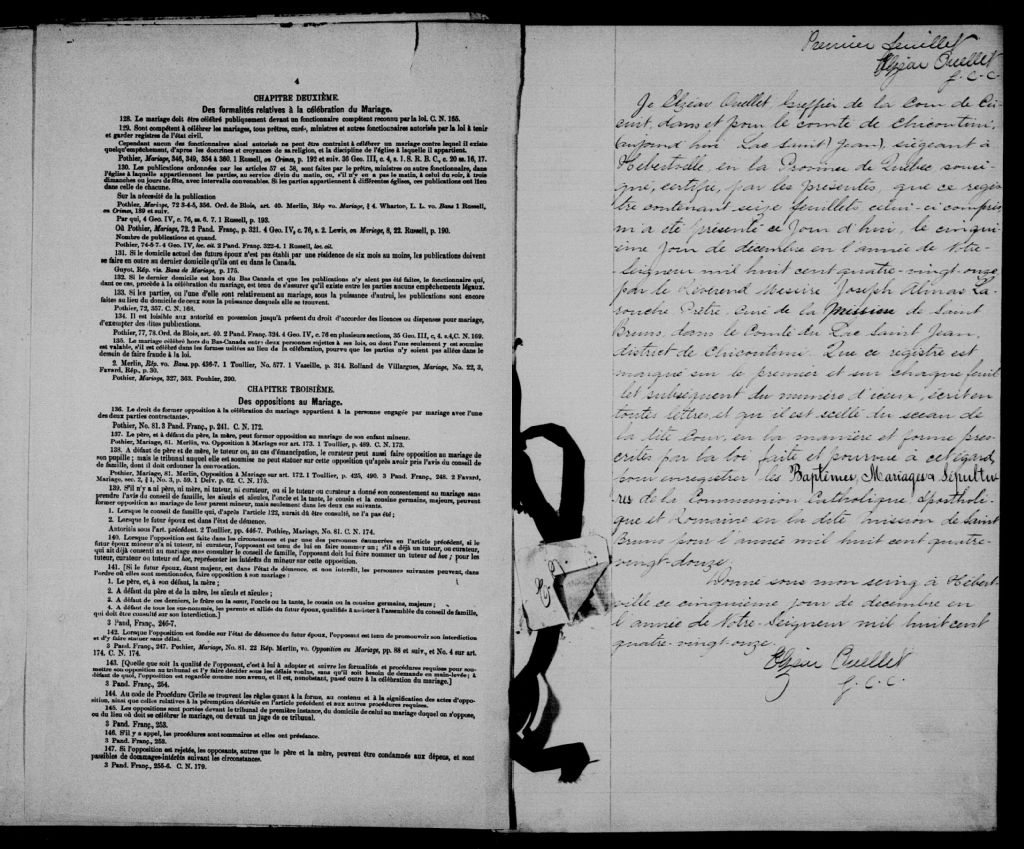 4
CHAPITRE DEUXIÈME.
Des formalités relatives à la célébration du Mariage.
128. Le mariage doit être célébré publiquement devant un fonctionnaire compétent reconnu par la loi. C. N. 165.
129. Sont compétents à célébrer les mariages, tous prêtres, curé, ministres et autres fonctionnaires autorisés par la loi à tenir
et garder registres de l'état civil.
Cependant aucun des fonctionnaires ainsi autorisés ne peut être contraint à célébrer un mariage contre lequel il existe
quelqu'empêchement, d'après les doctrines et croyances de sa religion, et la discipline de l'église à laquelle il appartient.
Pothier, Mariage, 346, 349, 354 à 360. 1 Russell, on Crimes, p. 192 et suiv. 36 Geo. III, c. 4, s. 1. S. R. B. C., c. 20 ss. 16, 17.
130. Les publications ordonnées par les articles 57 et 58, sont faites par le prêtre, ministre ou autre fonctionnaire, dans
l'église à laquelle appartiennent les parties, au service divin du matin, ou, s'il n'y en a pas le matin, à celui du soir, à trois
dimanches ou jours de fête, avec intervalle convenables. Si les parties appartiennent à différentes églises, ces publications ont lieu
dans celle de chacune.
Sur la nécessité de la publication
Pothier, Mariage, 72 3-4-5, 356. Ord. de Blois, art. 40. Merlin, Rép vo. Mariage, § 4. Wharton, L. L. vo. Bans 1 Russell,
on Crimes, 189 et suiv.
Par qui, 4 Geo. IV, c. 76, ss. 6. 7. 1 Russell, p. 193.
Où Pothier, Mariage, 72. 2 Pand. Franç., p. 321. 4 Geo. IV, c. 76, s. 2. Lewis, on Mariage, 8, 22. Russell, p. 190.
Nombre de publications et quand.
Pothier, 74-5-7. 4 Geo. IV, loc. cit. 2 Pand. Franç. 322-4. 1 Russell, loc. cit.
131. Si le domicile actuel des futurs époux n'est pas établi par une résidence de six mois au moins, les publications doivent
se faire en outre au dernier domicile qu'ils ont eu dans le Canada.
Guyot, Rép. vis. Bans de Mariage, p. 175.
132. Si le dernier domicile est hors du Bas Canada et que les publications n'y aient pas été faites, le fonctionnaire qui,
dans ce cas, procède à la célébration du mariage, est tenu de s'assurer qu'il existe entre les parties aucuns empêchements légaux.
133. Si les parties, ou l'une d'elle sont relativement au mariage, sous la puissance d'autrui, les publications sont encore
faites au lieu du domicile de ceux sous la puissance desquels elle se trouvent.
Pothier, 72, 357. C. N. 168.
134. Il est loisible aux autorité en possession jusqu'à présent du droit d'accorder des licences ou dispenses pour mariage,
d'exempter des dites publications.
Pothier, 77, 78. Ord. de Blois, art. 40. 2 Pand Franç. 324. 4 Geo. IV, c. 76 en plusieurs sections, 35 Geo. III, c. 4, s. 4, C. N. 169.
135. Le mariage célébré hors du Bas-Canada entre deux personnes sujettes à ses lois, ou dont l'une seulement y est soumise
est valable, s'il est célébré dans les formes usitées au lieu de la célébration, pourvu que les parties n'y soient pas allées dans le
dessein de faire fraude à la loi.
2. Merlin, Rép. vo. Bans. pp. 456-7. 1 Toullier, No. 577. 1 Vazeille, p. 314. Rolland de Villargues, Mariage, No. 22, 3,
Favard, Rép., p. 30.
Pothier, Mariage, 327, 363. Pouhier, 390.
CHAPITRE TROISIÈME.
Des oppositions au Mariage.
136. Le droit de former opposition à la célébration du mariage appartient à la personne engagée par mariage avec l'une
des deux parties contractantes.
Pothier, No. 81. 3 Pand. Franç., p. 241. C. N. 172.
137. Le père, et à défaut du père, la mère, peut former opposition au mariage de son enfant mineur.
Pothier, Mariage, 81. Merlin, vo. Opposition à Mariage sur art. 173. 1 Toullier, p. 489. C. N. 173.
138. A défaut de père et de mère, le tuteur ou, au cas d'émancipation, le curateur peut aussi faire opposition au mariage de
son pupille ; mais le tribunal auquel elle est soumise ne peut statuer sur cette opposition qu'après avoir pris l'avis du conseil de
de famille, dont il doit ordonner la convocation.
Pothier, Mariage, 81. Merlin, Opposition à Mariage sur art. 172. 1 Toullier, p. 425, 490. 3 Pand. Franç., 248. 2 Favard,
Mariage, sec. 2, § 1, No. 3, p. 59. 1 Delv. p. 62. C. N. 175.
139. S'il n'y a ni père, ni mère, ni tuteur, ni curateur, ou si le tuteur ou curateur a donné son consentement au mariage sans
prendre l'avis du conseil de famille, les aïeuls et aïeules, l'oncle et la tante, le cousin et la cousine germains, majeurs, peuvent
former opposition au mariage de leur parent mineur, mais seulement dans les deux cas suivants.
1. Lorsque le conseil de famille qui, d'après l'article 122, aurait dû être consulté, ne l'a pas été ;
2. Lorsque le futur époux est dans l'état de démence.
Autorités sous l'art. précédent. 2 Toullier, pp. 446-7. Pothier, Mariage, No. 81. C. N. 174.
140. Lorsque l'opposition est faite dans les circonstances et par une des personnes énumérées en l'article précédent, si le
futur époux mineur n'a ni tuteur, ni curateur, l'opposant est tenu de lui en faire nommer un ; s'il a déjà un tuteur, ou curateur,
qui ait déjà consenti au mariage sans consulter le conseil de famille, l'opposant doit lui faire nommer un tuteur ad hoc ; pour les
tuteur, curateur ou tuteur ad hoc, représenter les intérêts du mineur sur cette opposition.
141. [Si le futur époux, étant majeur, est dans l'état de démence, et non interdit, les personnes suivantes peuvent, dans
l'ordre où elles sont mentionnées, faire opposition à son mariage :
1. Le père, et, à son défaut, la mère ;
2. A défaut du père et de la mère, les aïeuls et aïeules ;
3. A défaut de ces derniers, le frère ou la sœur, l'oncle ou la tante, le cousin ou la cousine germains, majeurs ;
4. A défaut de tous les sus-nommés, les parents et alliés du futur époux, qualifiés à assister à l'assemblée du conseil de famille,
qui doit être consulté sur son interdiction.]
3 Pand, Franç., 246-7.
142. Lorsque l'opposition est fondée sur l'état de démence du futur époux, l'opposant est tenu de promouvoir son interdiction
et d'y faire statuer sans délai.
3 Pand. Franç., 247. Pothier, Mariage, No. 81. 22 Rép. Merlin, vo. Opposition au Mariage, pp. 88 et suiv, et No. 4 sur art.
174. C. N. 174.
143. [Quelle que soit la qualité de l'opposant, c'est à lui à adopter et suivre les formalités et procédures requises pour sou-
mettre son opposition au tribunal et l'y faire décider sous les délais voulus, sans qu'il soit besoin de demande en main-levée ; à
défaut de quoi, l'opposition est regardée comme non avenu, et il est, nonobstant, passé outre à la célébration du mariage.]
3 Pand. Franç., 254.
144. Au code de Procédure Civile se trouvent les règles quant à la forme, au contenu et à la signification des actes d'oppo-
sition, ainsi que celles relatives à la péremption décrétée en l'article précédent et aux autres procédures requises.
145. Les oppositions sont portées devant le tribunal de première instance, du domicile de celui au mariage duquel on s'oppose,
ou du lieu où doit se célébrer le mariage, ou devant un juge de ce tribunal.
3 Pand. Franç., 253.
146. S'il y a appel, les procédures sont sommaires et elles ont préséance.
3 Pand. Franç., 258.
147. Si l'opposition est rejetée, les opposants, autres que le père et la mère, peuvent être condamnés aux dépens, et sont
passibles de dommages-intérêts suivant les circonstances.
3 Pand. Franç., 255-6. C. N. 179.
Premier feuillet
Elzéar Ouellet
G. C. C.
Je Elzéar Ouellet, Greffier de la Cour de Cir
cuit, dans et pour le comté de Chicoutimi,
(aujourd'hui Lac Saint Jean), siégeant à
Hébertville, en la Province de Québec sousi-
gné, certifie, par les présentes, que ce regis
tre contenant seize feuillets celui-ci compris
m'a été présenté ce jour d'hui, le cinqui-
ième jour de decembre en l'année de Notre-
Seigneur mil huit cent quatre-vingt-onze
par le Révérend Messire Joseph Almas La-
rouche Prêtre, Curé de la Mission de Saint
Bruno, dans le Comté du Lac Saint Jean,
district de Chicoutimi. Que ce registre est
marqué sur le premier et sur chaque feuil
let subséquent du numéro d'iceux, écrit en
toutes lettres et qu'il est scellé du sceau de
la dite Cour, en la manière et forme pres-
crites par la loi faite et pourvue à cet égard,
pour enregistrer les Baptêmes, Mariages & Sépultu-
res de la Communion Catholique, Apostoli-
que et Romaine en la dite mission de Saint
Bruno pour l'année mil huit cent quatre-
vingt-douze.
Donné sous mon seing à Hébert-
ville ce cinquième jour de decembre en
l'année de Notre-Seigneur mil huit cent
quatre-vingt-onze.
Elzéar Ouellet
G. C. C.